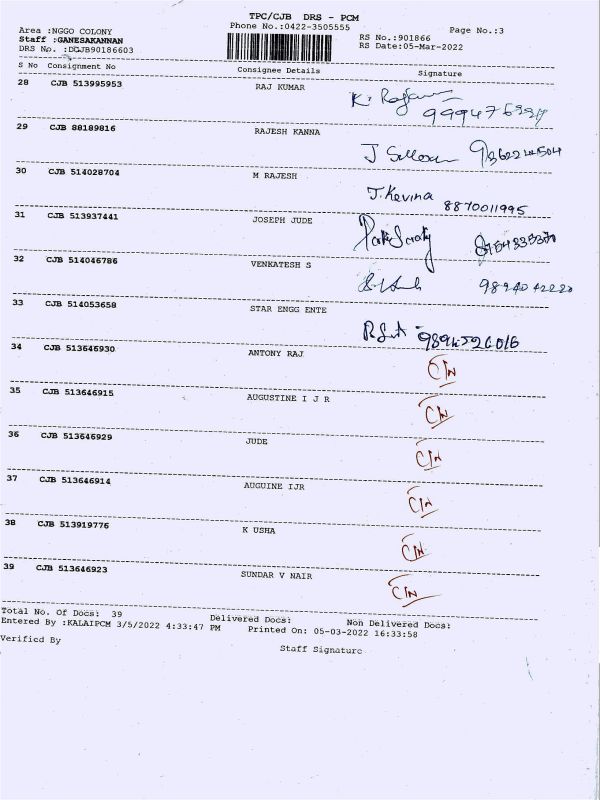 TPC/CJB DRS - PCM
Area :NGGO COLONY Phone No.:0422-3505555 Page No.:3
Staff :GANESAKANNAN RS No.:901866
DRS No. :DCJB90186603 RS Date:05-Mar-2022
S No Consignment No Consignee Details Signature
28 CJB 513995953 RAJ KUMAR
29 CJB 88189816 RAJESH KANNA
30 CJB 514028704 M RAJESH
J. Kevina 8870011995
31 CJB 513937441 JOSEPH JUDE
32 CJB 514046786 VENKATESH S
9894042220
33 CJB 514053658 STAR ENGG ENTE
9894526016
34 CJB 513646930 ANTONY RAJ
C/N
35 CJB 513646915 AUGUSTINE I J R
C/N
36 CJB 513646929 JUDE
C/N
37 CJB 513646914 AUGUINE IJR
C/N
38 CJB 513919776 K USHA
C/N
39 CJB 513646923 SUNDAR V NAIR
C/N
Total No. Of Docs: 39 Delivered Docs: Non Delivered Docs:
Entered By :KALAIPCM 3/5/2022 4:33:47 PM Printed On: 05-03-2022 16:33:58
Verified By Staff Signature